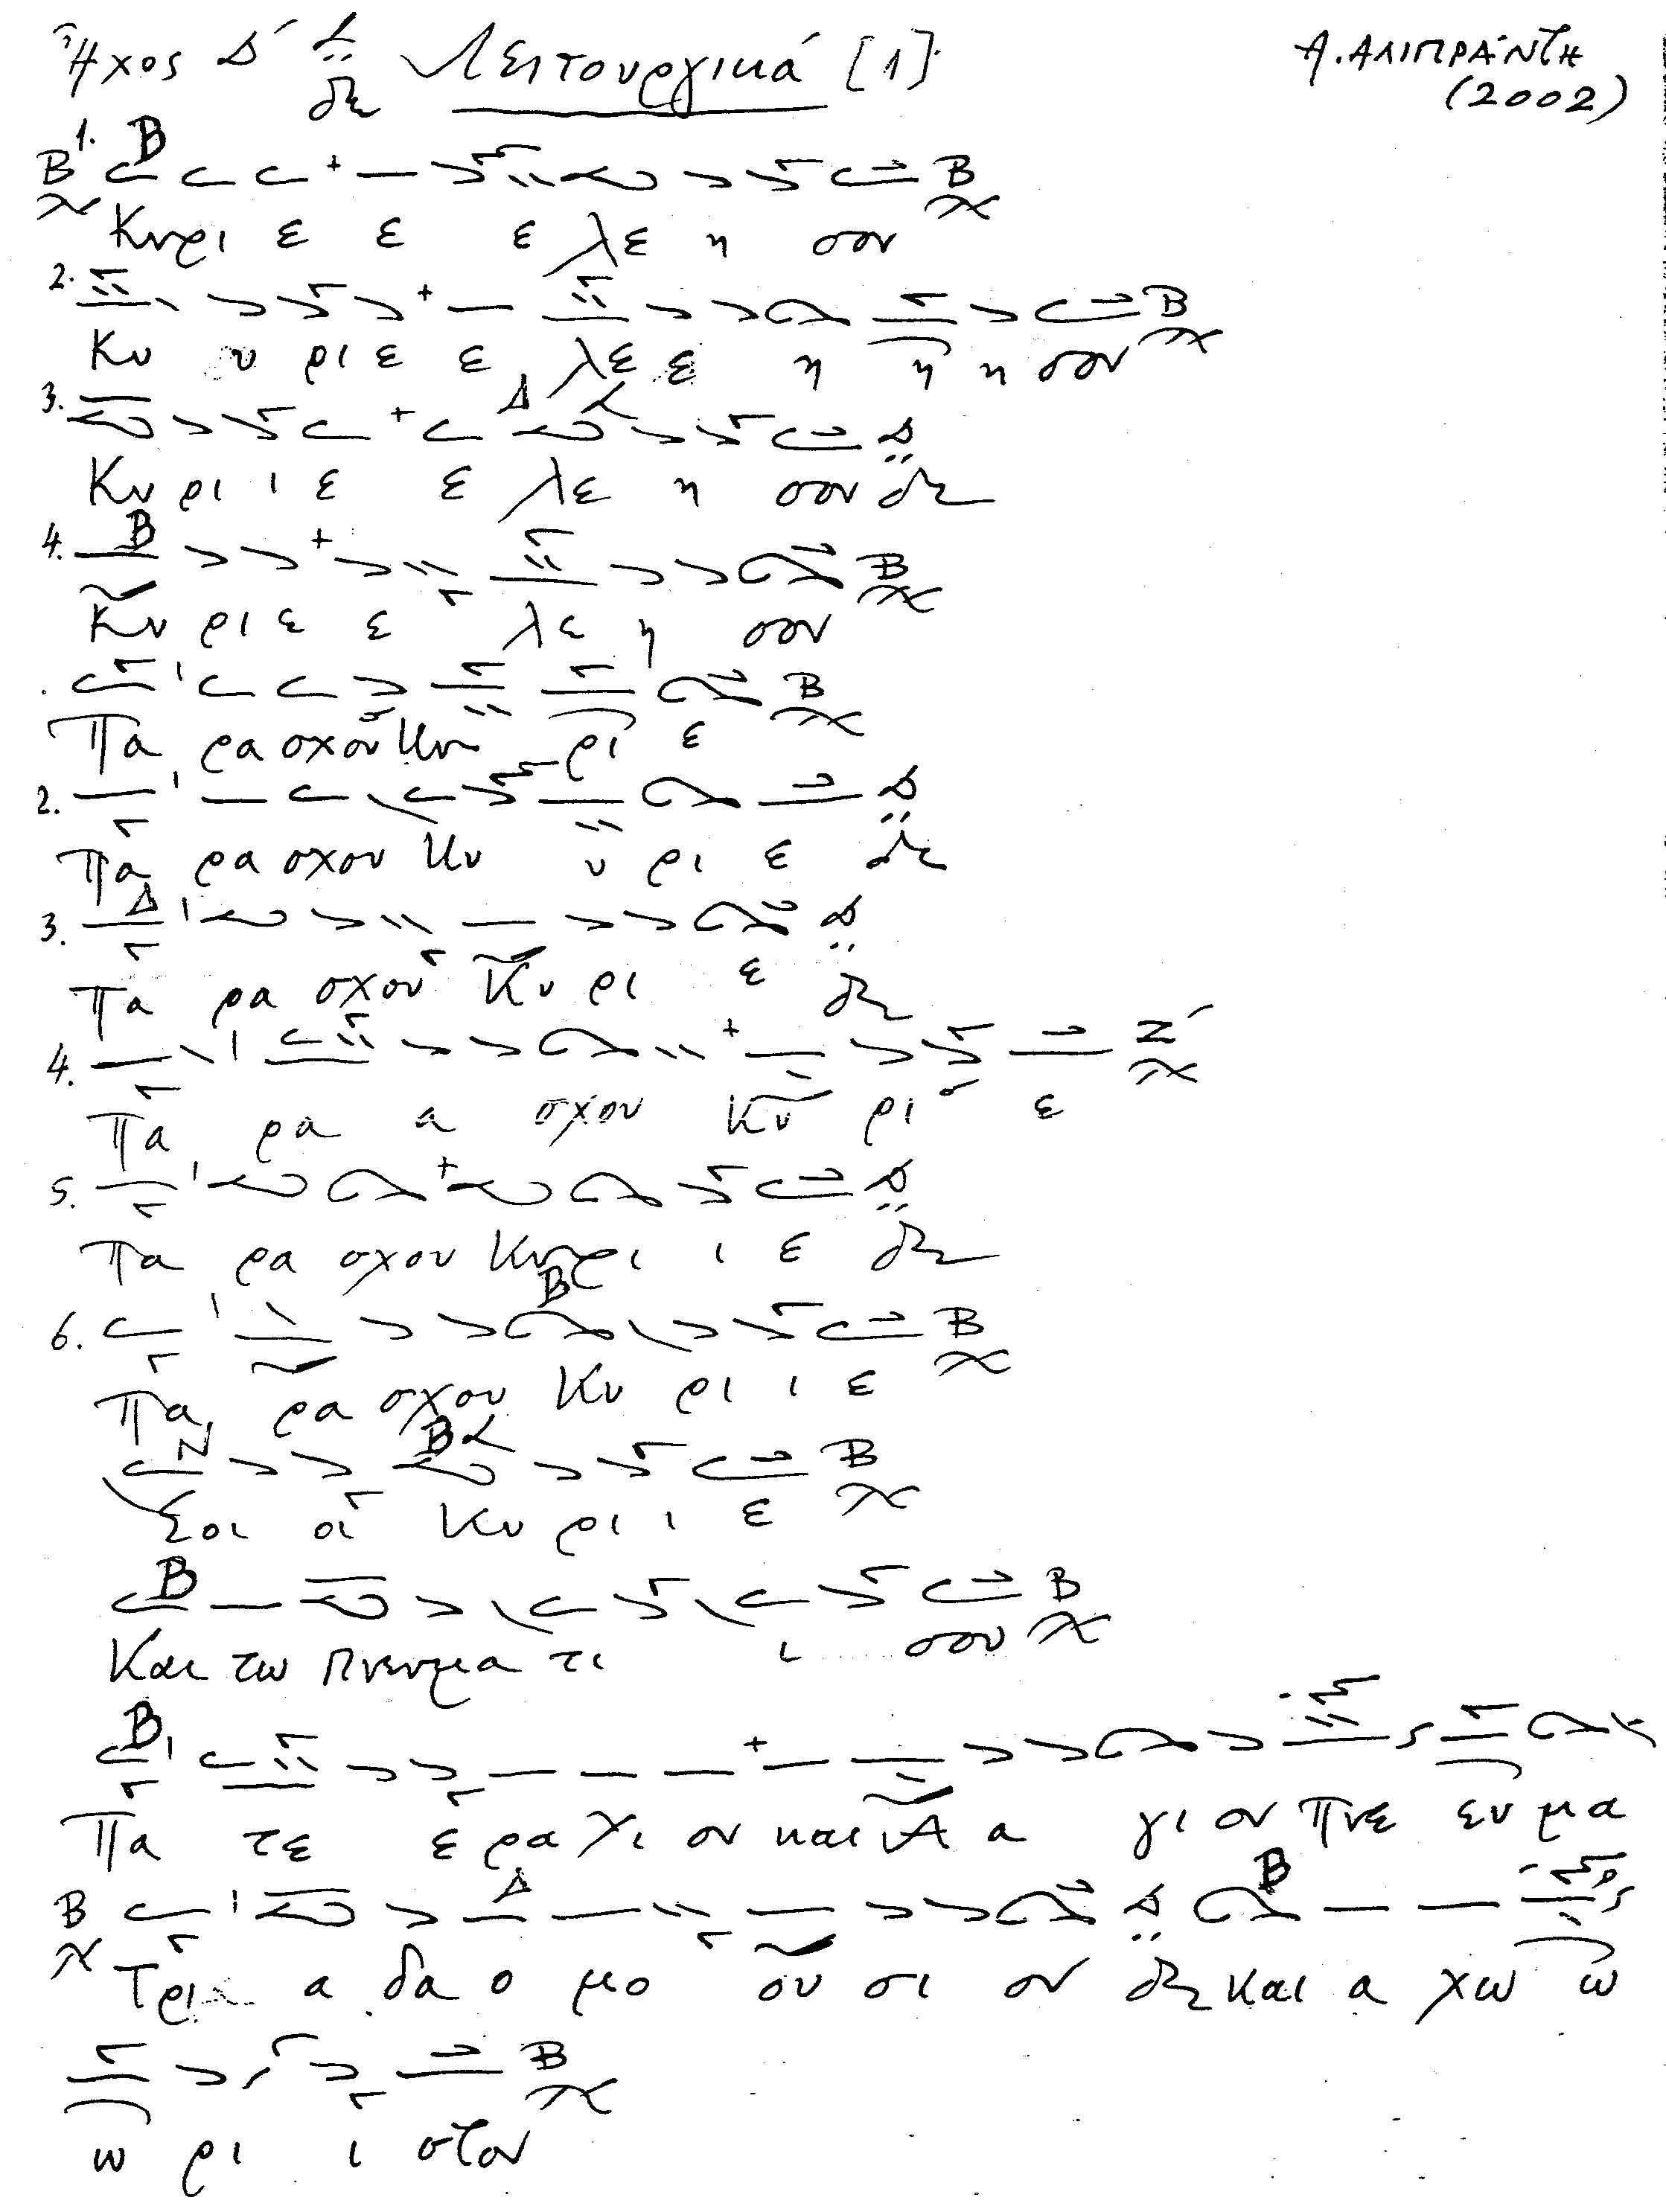 Ἦχος Δ΄ δι Λειτουργικά [1] Α. ΑΛΙΠΡΑΝΤΗ
(2002)
1. Β
Β Β
Κυρι ε ε ε λε η σον
2. Β
Κυ υ ρι ε ε λε ε η η η σον
3. Δ Δ
Κυ ρι ι ε ε λε η σον δι
4. Β Β
Κυ ρι ε ε λε η σον
Β
Πα ρα σχου Κυ ρι ε
2. Δ
Πα ρα σχου Κυ υ ρι ε δι
3. Δ Δ
Πα ρα σχου Κυ ρι ε δι
4. Ζ΄
Πα ρα α σχου Κυ ρι ε
5. Δ
Πα ρα σχου Κυ ρι ι ε δι
6. Β Β
Πα ρα σχου Κυ ρι ι ε
Ν Β Β
Σοι οι Κυ ρι ι ε
Β Β
Και τω πνευμα τι ι σου
Β
Πα τε ε ρα Υι ον και Α α γι ον πνε ευ μα
Β Δ Δ Β
Τρι α δα ο μο ου σι ον δι και α χω ω
Β
ω ρι ι στον